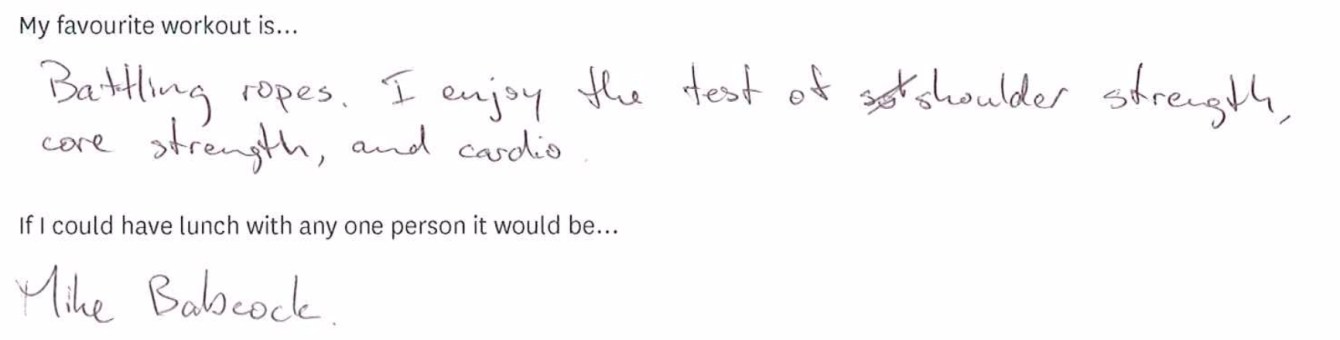 My favourite workout is...
Battling ropes. I enjoy the test of shoulder strength,
core strength, and cardio.
If I could have lunch with any one person it would be...
Mike Babcock.